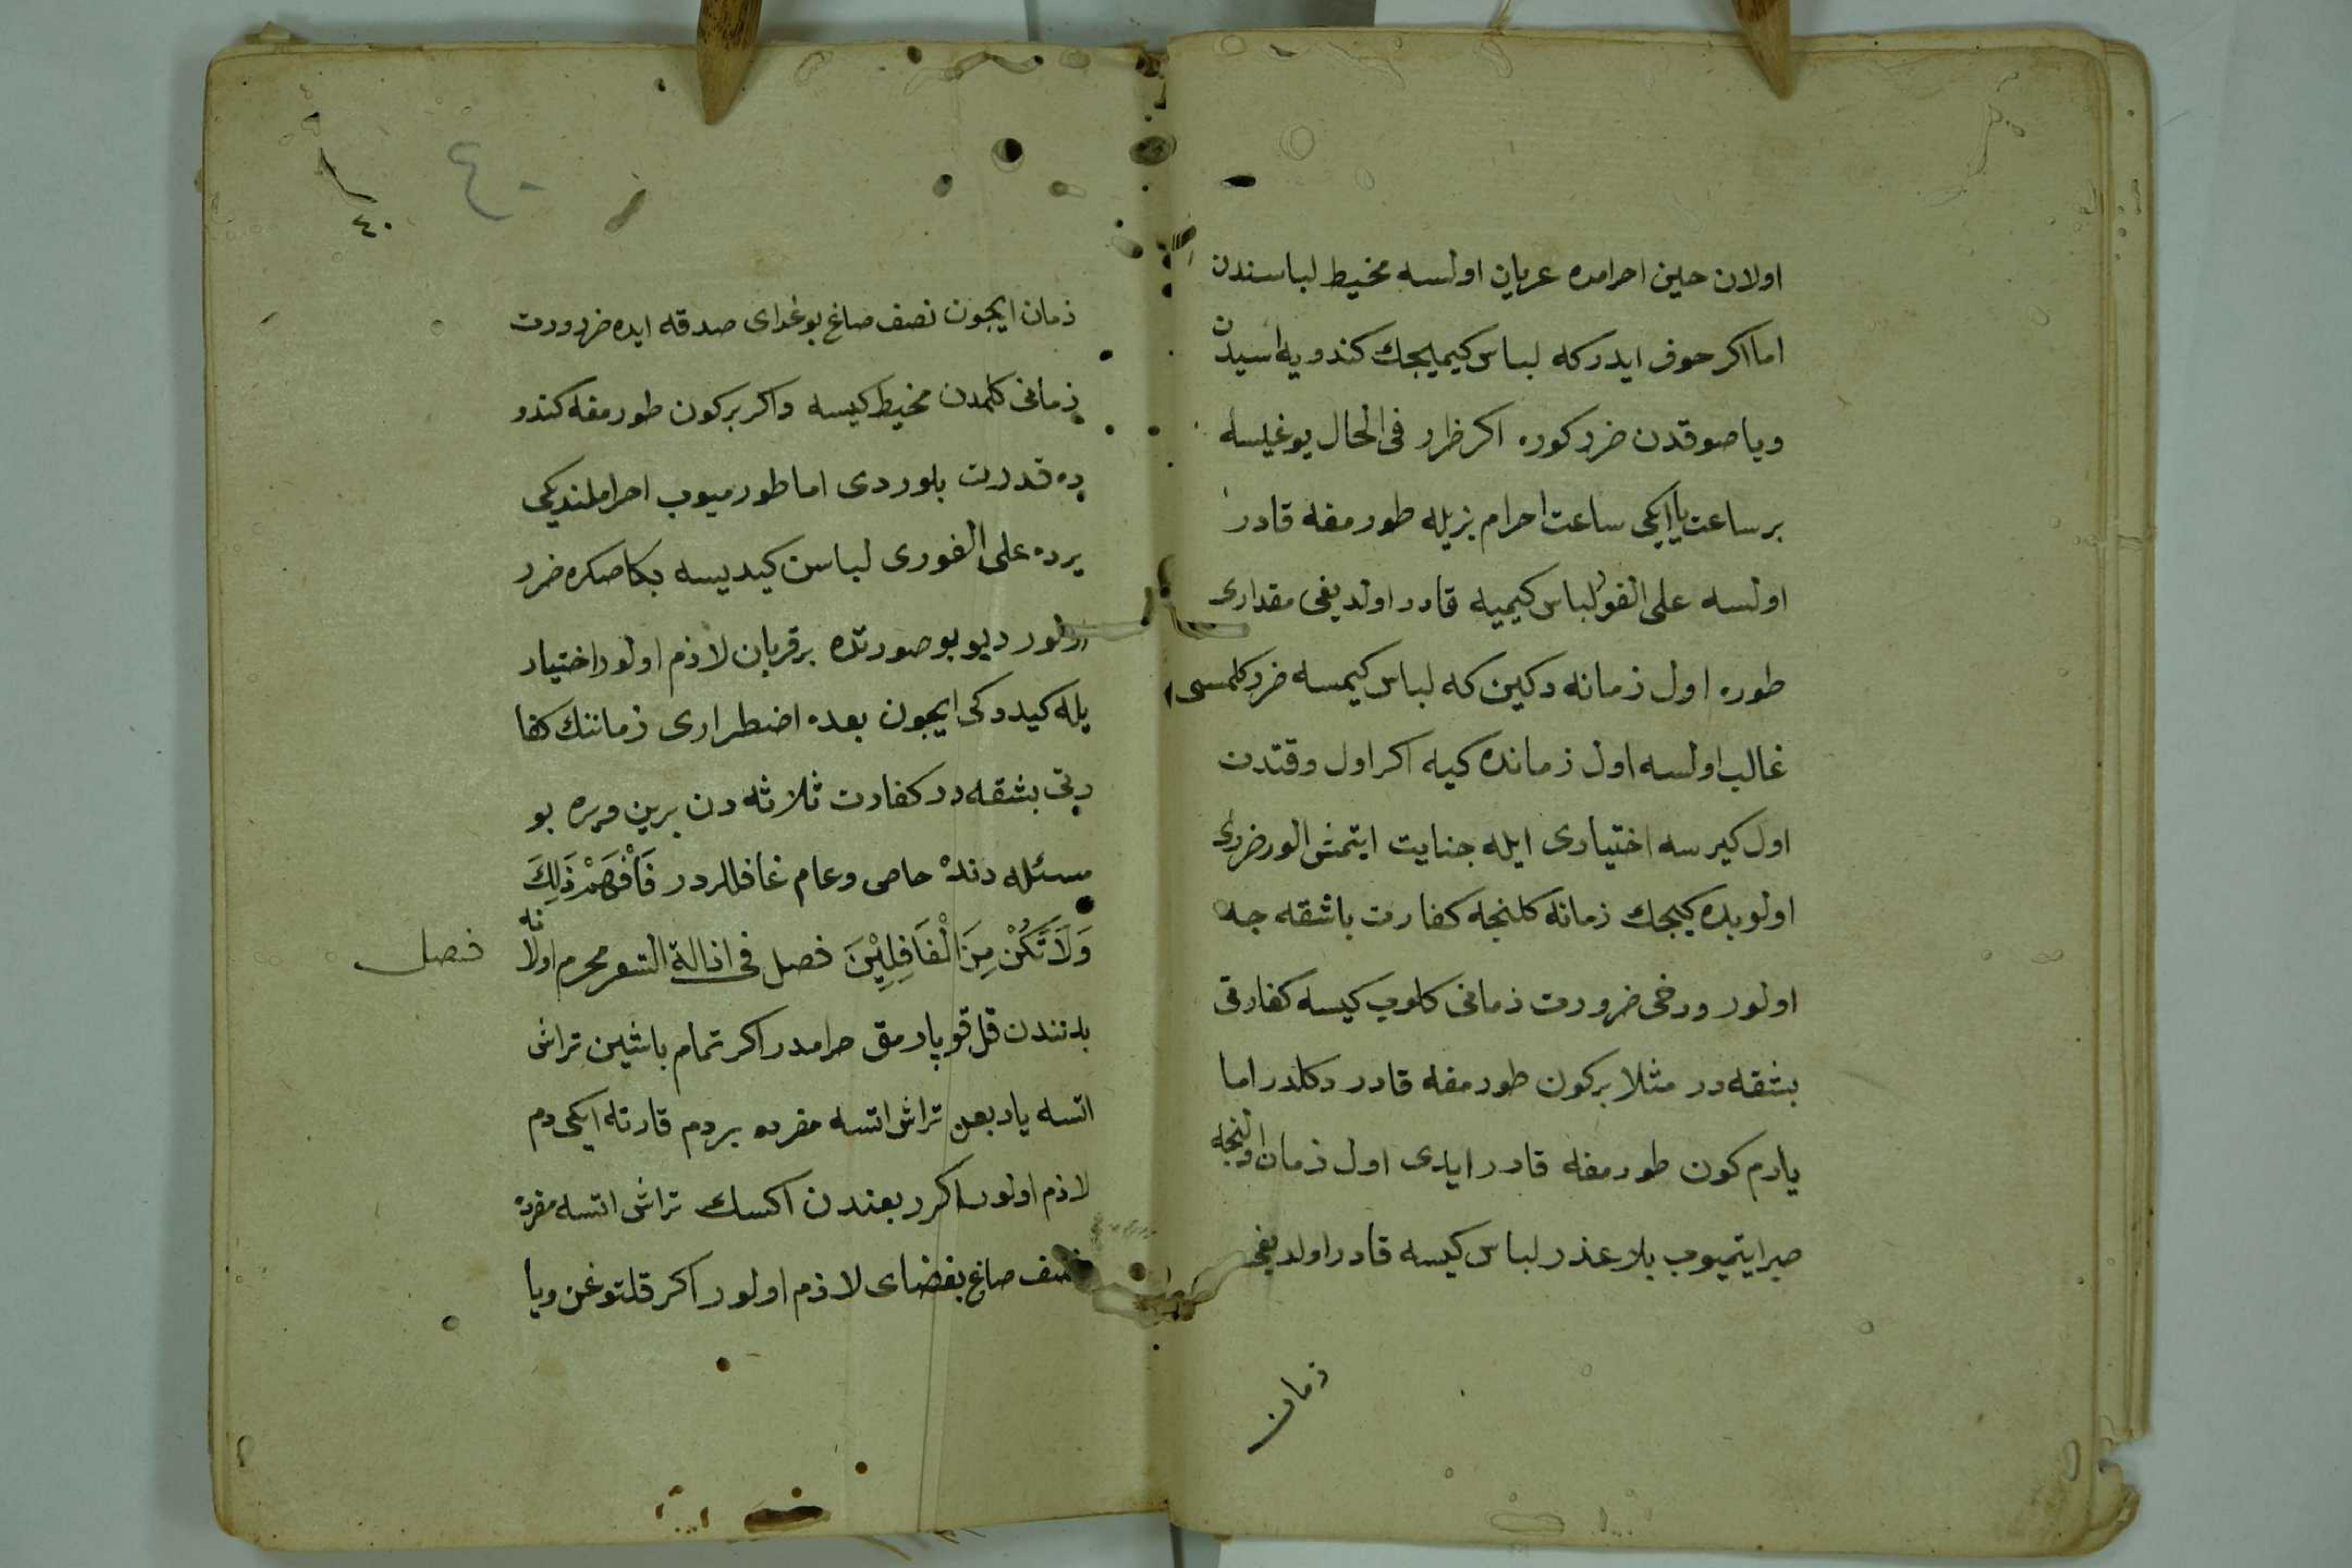 اولان حين احرامده عريان اولسه مخيط لباسندن
اما اكر خوف ايدركه لباس كيميجك كندويه اسيدن
ويا صوقدن ضرر كوره اكر ضرر فى الحال يوغيسه
بر ساعت يا ايكى ساعت احرام بزيله طورمغه قادر
اولسه على الفور لباس كيميه قادر اولديغى مقدارى
طوره اول زمانه دكين كه لباس كيمسه ضرر كلمسى
غالب اولسه اول زمانده كيه اكر اول وقتدن
اول كيرسه اختيارى ايله جنايت ايتمش الور ضرورى
اولوبده كيجك زمانه كلنجه كفارت باشقه جه
اولور ودخى ضرورت زمانى كلوب كيسه كفارتى
بشقه در مثلا بركون طورمغه قادر دكلدر اما
يارم كون طورمغه قادر ايدى اول زمان اولنجه
صبر ايتميوب بلا عذر لباس كيسه قادر اولديغى
زمان
٤٠
٤٠
زمان ايچون نصف صاع بوغداى صدقه ايده ضرورت
زمانى كلمدن مخيط كيسه واكر بركون طورمغه كندو
ده قدرت بلوردى اما طورميوب احراملنديكى
يرده على الفورى لباسن كيديسه بكا صكره ضرر
اولور ديو بو صورتده بر قربان لازم اولور اختيار
يله كيدوكى ايچون بعده اضطرارى زماننك كفا
رتى بشقه در كفارت ثلاثه دن برين ويره بو
مسئله دنده خاص وعام غافللردر فَافْهَمْ ذَلِكَ
وَلَا تَكُنْ مِنَ الْغَافِلِيْنَ فصل فى ازالة الشعر محرم اولانه
فصل
بدنندن قل قوپارمق حرامدر اكر تمام باشين تراش
اتسه يا ربعن تراش اتسه مفرده بر دم قارنه ايكى دم
لازم اولور اكر ربعندن اكسك تراش اتسه مفرده
نصف صاع بغضاى لازم اولور اكر قلتوغن ويا